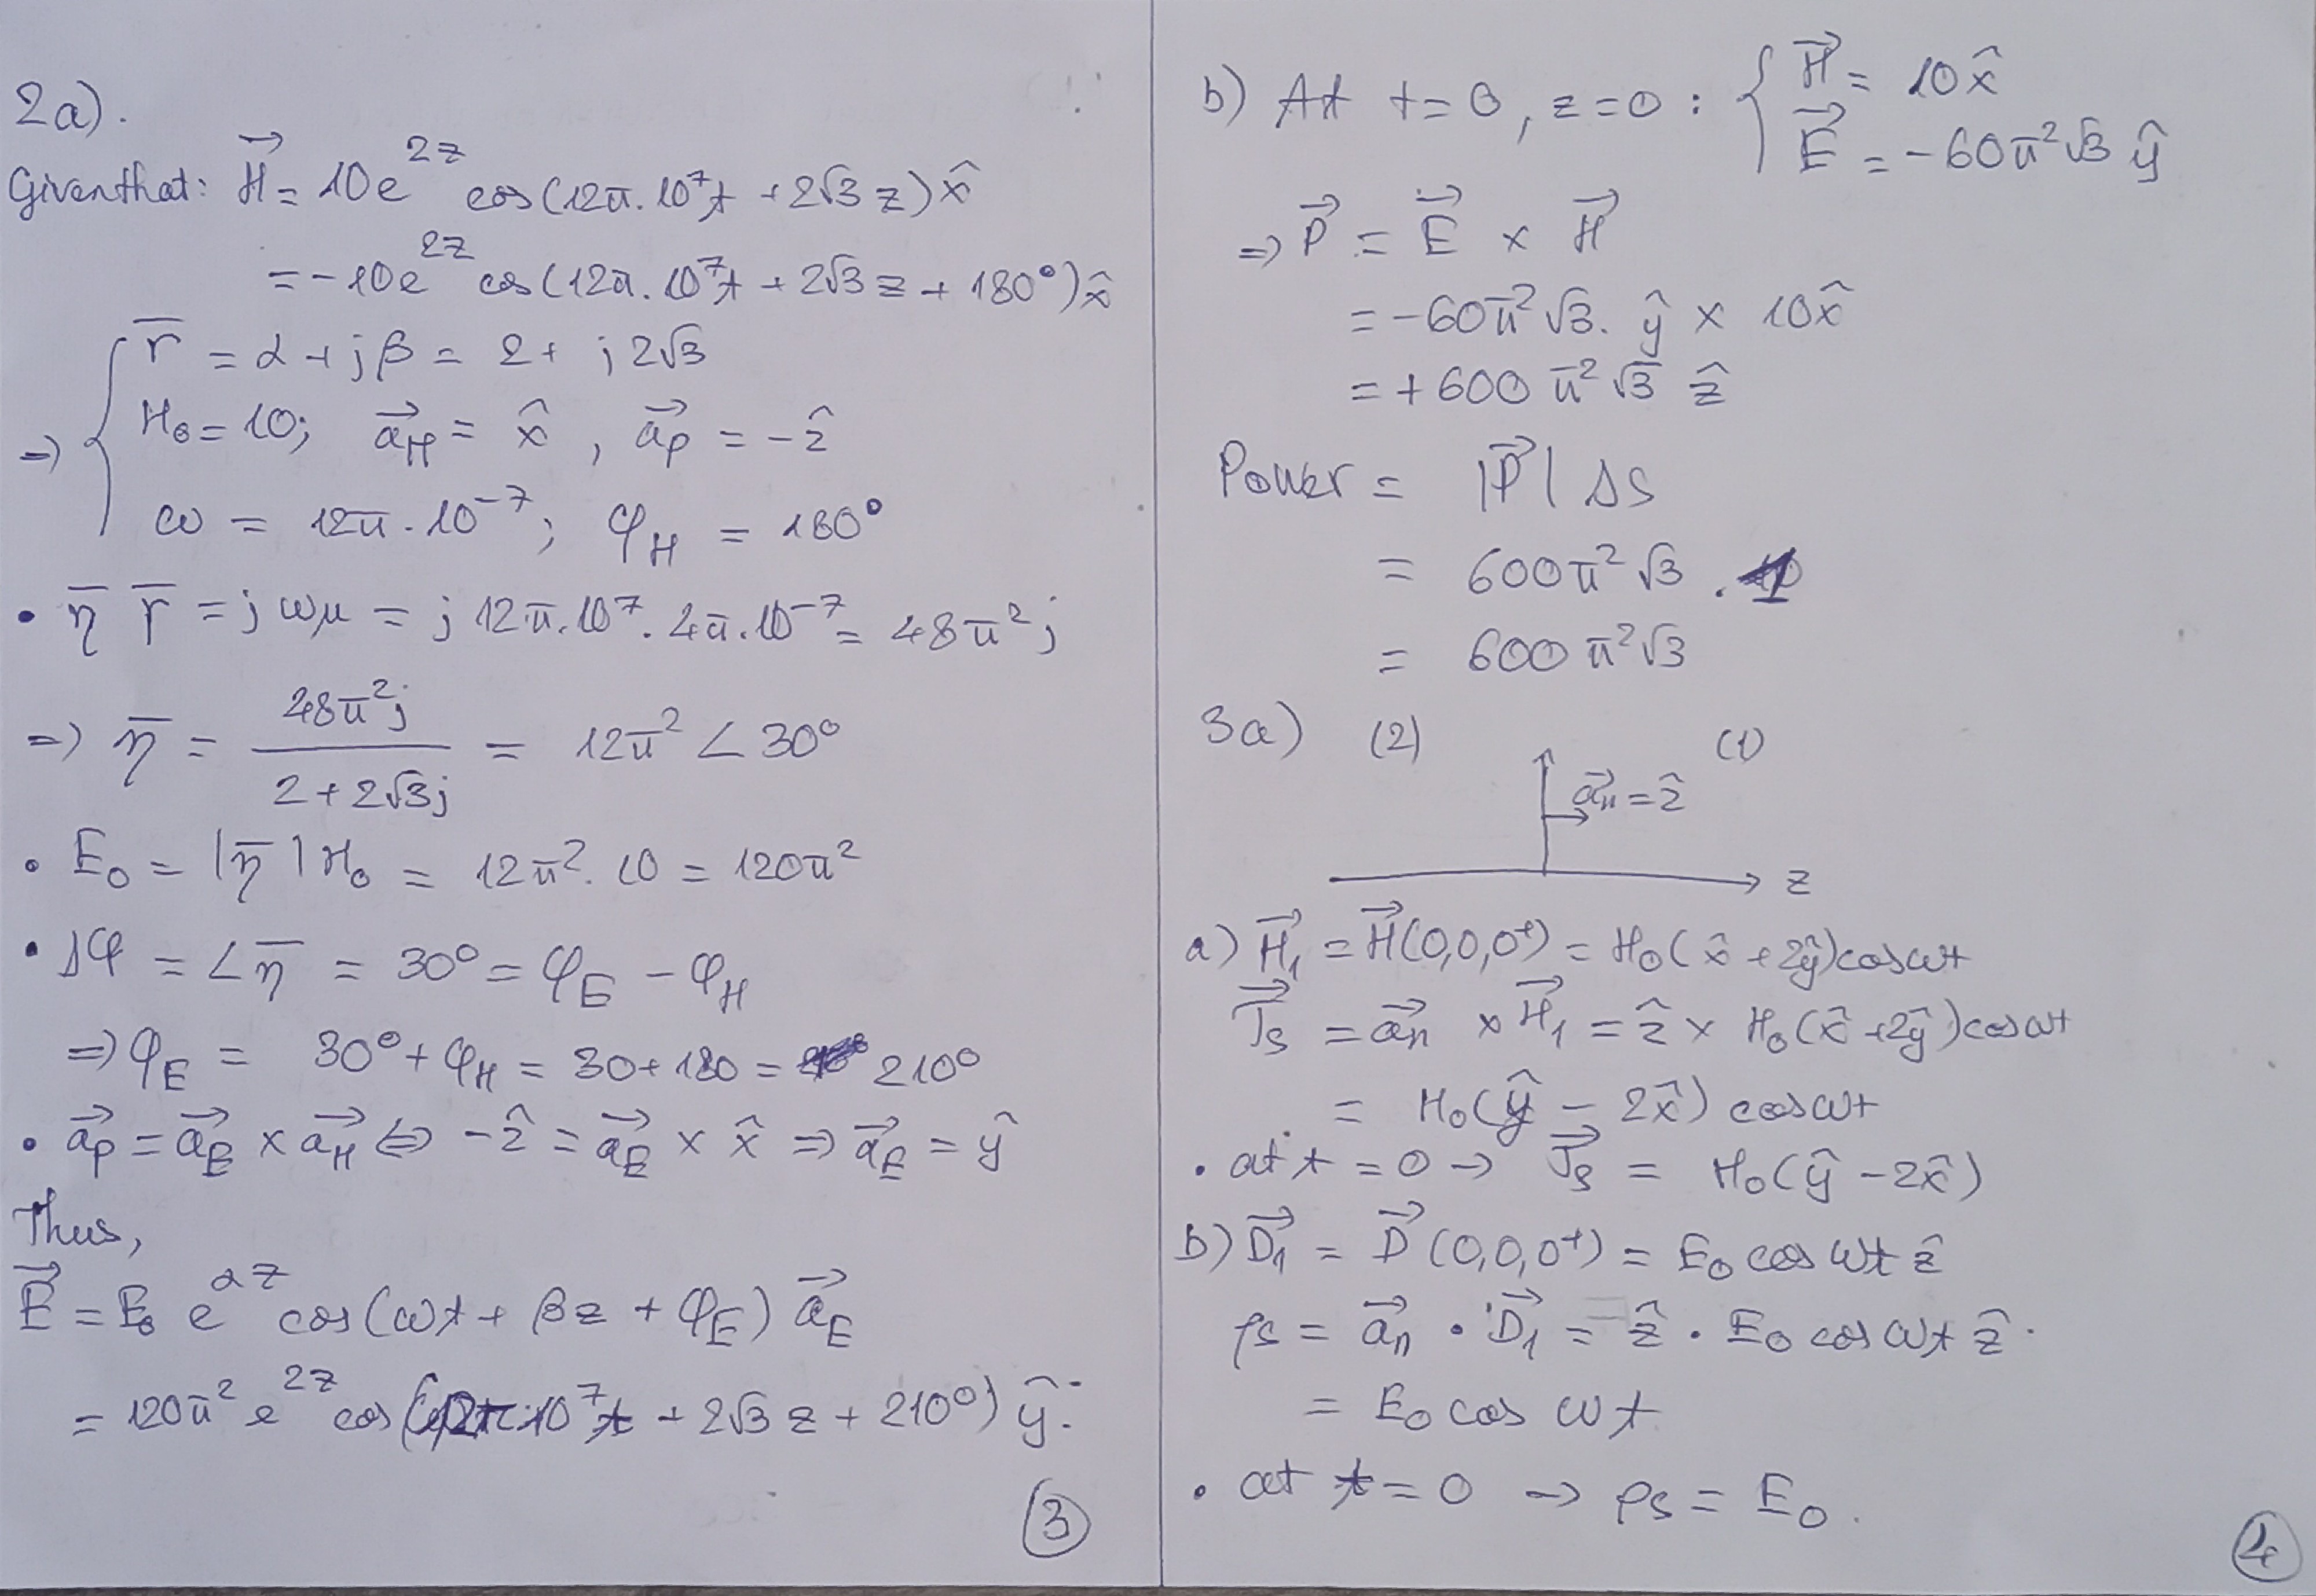 2a).
Given that: H⃗ = 10e^{2z} cos(12π.10^7t + 2√3 z) x̂
= -10e^{2z} cos(12π.10^7t + 2√3 z + 180°) x̂
⇒ { Γ̅ = α + jβ = 2 + j2√3
H₀ = 10; a⃗_H = x̂, a⃗_P = -ẑ
ω = 12π.10^{-7}; φ_H = 180°
• η̅ Γ̅ = jωμ = j 12π.10^7. 4π.10^{-7} = 48π²j
⇒ η̅ = 48π²j / (2 + 2√3j) = 12π² ∠30°
• E₀ = |η̅| H₀ = 12π². 10 = 120π²
• Δφ = ∠η̅ = 30° = φ_E - φ_H
⇒ φ_E = 30° + φ_H = 30 + 180 = 210°
• a⃗_P = a⃗_E × a⃗_H ⇔ -ẑ = a⃗_E × x̂ ⇒ a⃗_E = ŷ
Thus,
E⃗ = E₀ e^{αz} cos(ωt + βz + φ_E) a⃗_E
= 120π² e^{2z} cos(12π.10^7t + 2√3 z + 210°) ŷ.
③
b) At t = 0, z = 0: { H⃗ = 10x̂
E⃗ = -60π²√3 ŷ
⇒ P⃗ = E⃗ × H⃗
= -60π²√3. ŷ × 10x̂
= +600π²√3 ẑ
Power = |P⃗| ΔS
= 600π²√3 . 1
= 600π²√3
3a) (2) (1)
a⃗n = ẑ
z
a) H⃗₁ = H⃗(0,0,0⁺) = H₀(x̂ + 2ŷ)cosωt
J⃗s = a⃗n × H⃗₁ = ẑ × H₀(x̂ + 2ŷ)cosωt
= H₀(ŷ - 2x̂) cosωt
• at t = 0 → J⃗s = H₀(ŷ - 2x̂)
b) D⃗₁ = D⃗(0,0,0⁺) = E₀ cos ωt ẑ
ρs = a⃗n • D⃗₁ = ẑ • E₀ cos ωt ẑ.
= E₀ cos ωt
• at t = 0 → ρs = E₀.
④